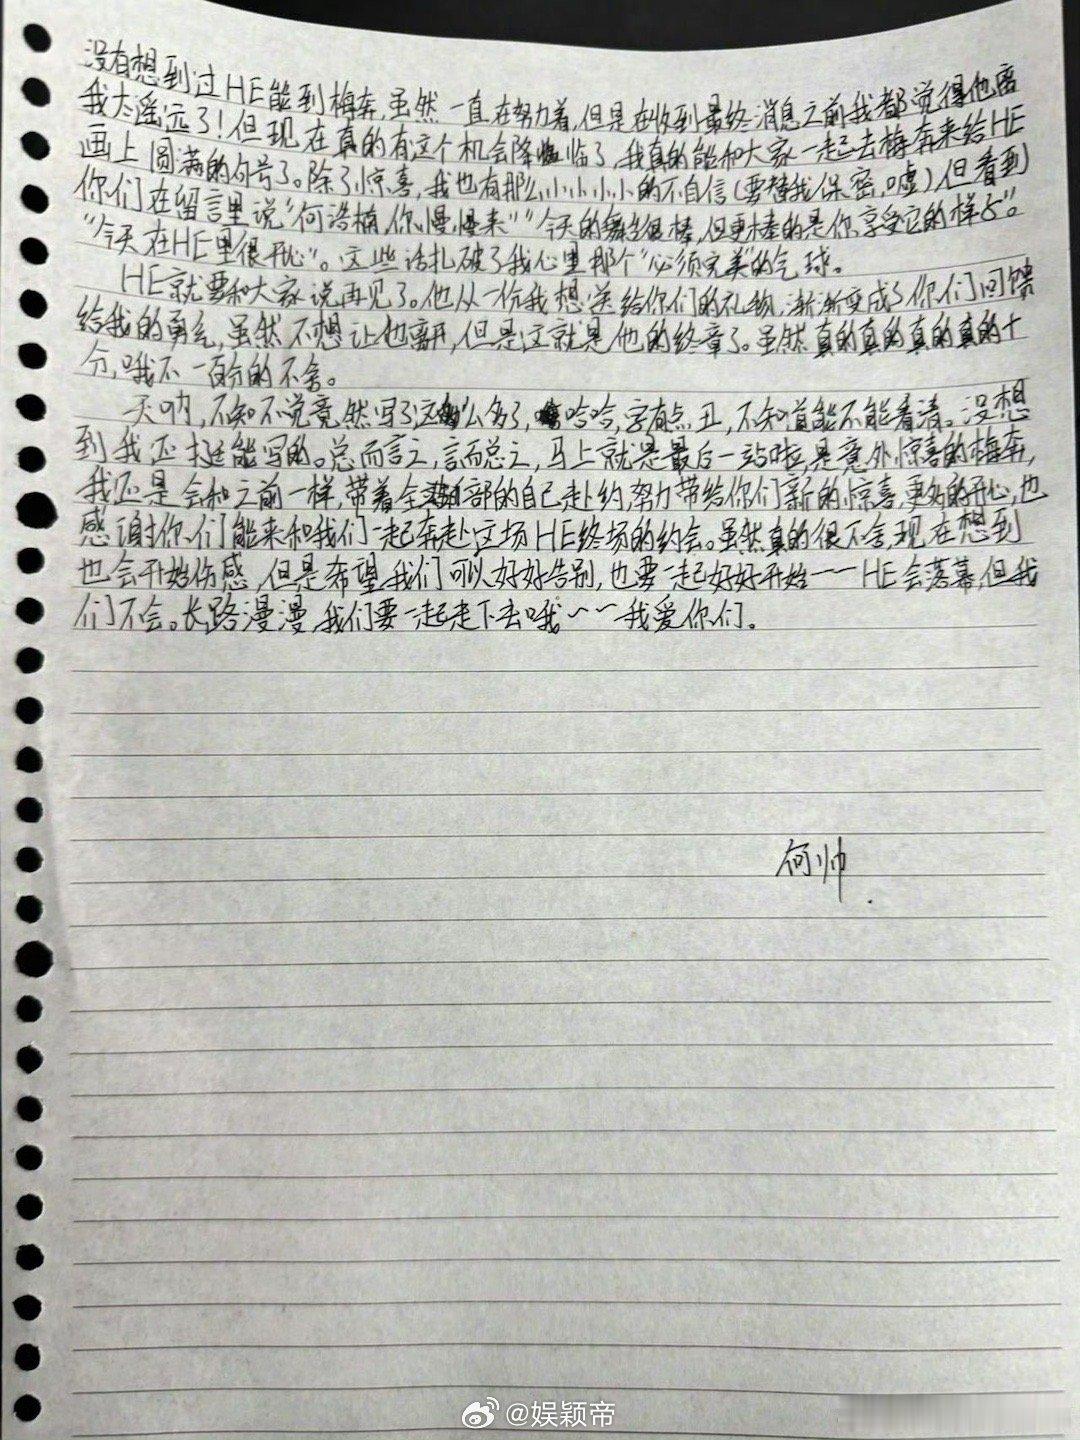 没有想到过HE能到梅奔,虽然一直在努力着,但是在收到最终消息之前我都觉得他离
我太遥远了!但现在真的有这个机会降临了,我真的能和大家一起去梅奔来给HE
画上圆满的句号了。除了惊喜,我也有那么小小小小的不自信(要替我保密,嘘)但看到
你们在留言里说“何浩楠,你慢慢来”“今天的舞台很棒,但更棒的是你享受它的样子”。
“今天在HE里很开心”。这些话扎破了我心里那个“必须完美”的气球。
HE就要和大家说再见了。他从一份我想送给你们的礼物,渐渐变成了你们回馈
给我的勇气,虽然不想让他离开,但是这就是他的终章了。虽然真的真的真的真的十
分,哦不一百分的不舍。
天呐,不知不觉竟然写了这么多了,哈哈,字有点丑,不知道能不能看清。没想
到我还挺能写的。总而言之,言而总之,马上就是最后一站啦,是意外惊喜的梅奔,
我还是会和之前一样,带着全部的自己赴约,努力带给你们新的惊喜,更好的开心,也
感谢你们能来和我们一起奔赴这场HE终场的约会。虽然真的很不舍,现在想到
也会开始伤感,但是希望我们可以好好告别,也要一起好好开始~~HE会落幕,但我
们不会。长路漫漫,我们要一起走下去哦~~我爱你们。
何帅.
@娱颖帝